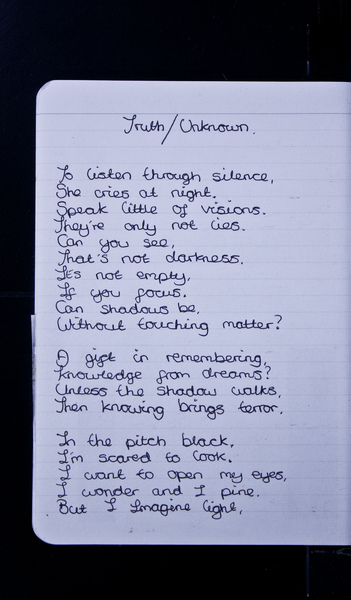 Truth/Unknown.
To listen through silence,
She cries at night.
Speak little of visions.
They're only not lies.
Can you see,
That's not darkness.
It's not empty,
If you focus.
Can shadows be,
Without touching matter?
A gift in remembering,
Knowledge from dreams?
Unless the shadow walks,
Then knowing brings terror.
In the pitch black,
I'm scared to look.
I want to open my eyes,
I wonder and I pine.
But I Imagine light,